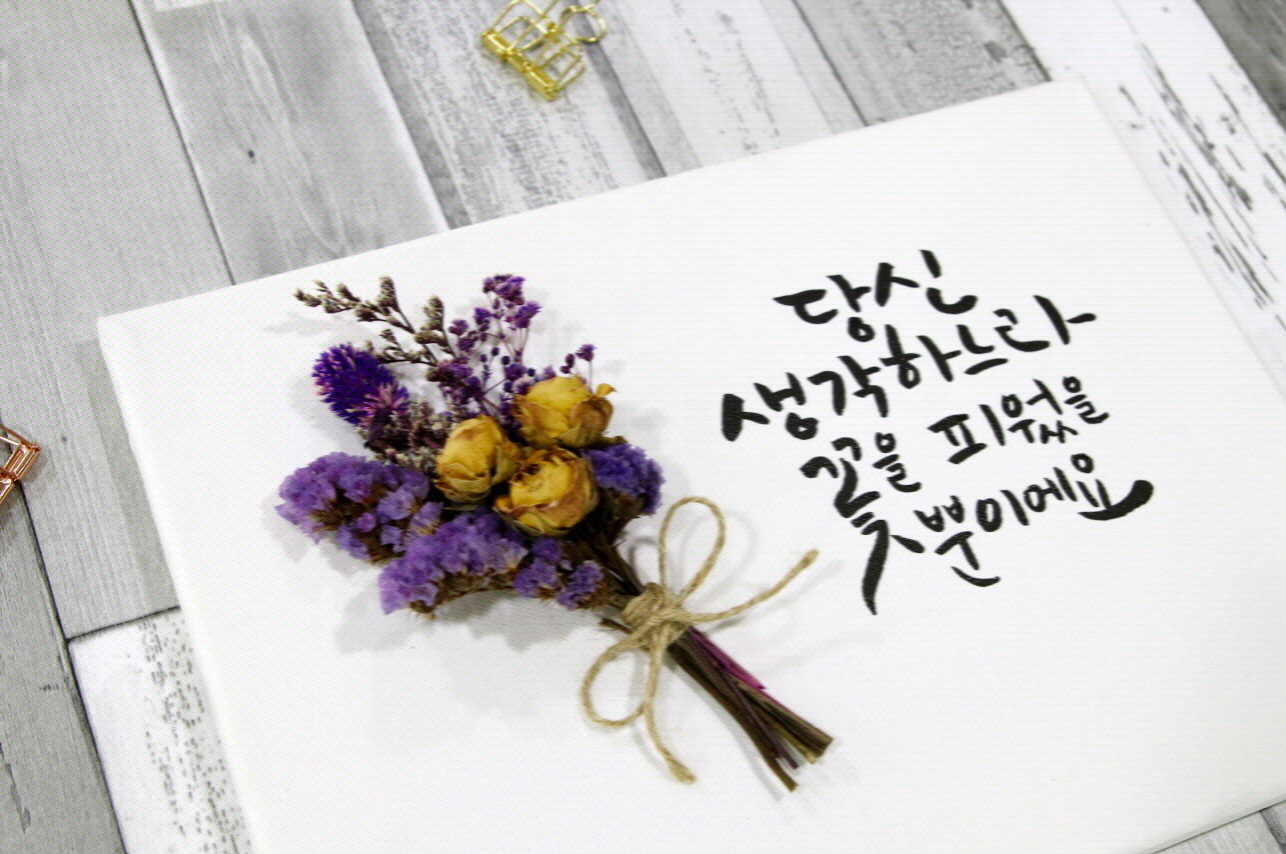 당신
생각하느라
꽃을 피웠을
뿐이에요